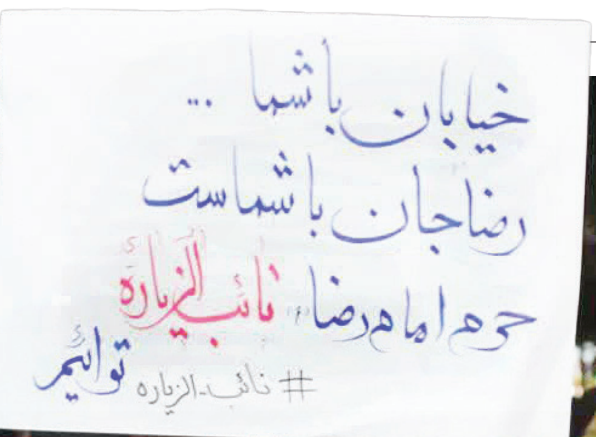 خیابان با شما ...
رضا جان با شماست
حرم امام رضا، نائب الزیارة
توائیم
# نائب_الزیاره